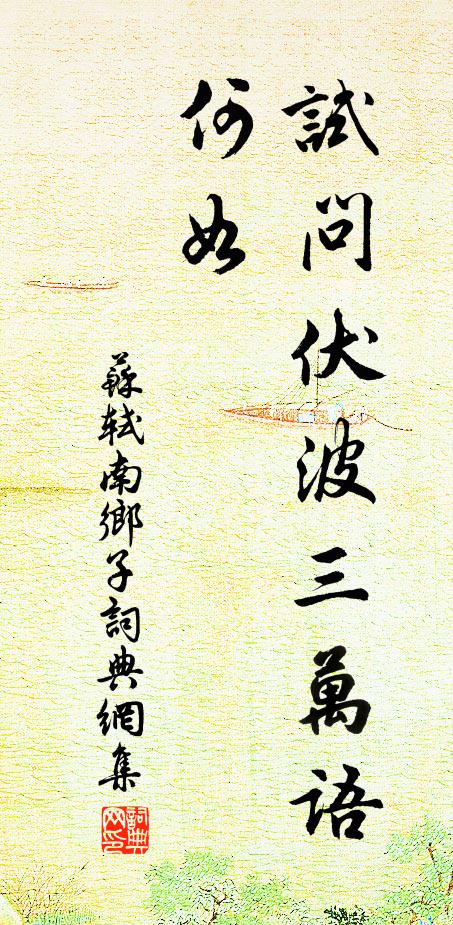 試問伏波三萬語
何如
蘇軾南鄉子詞典網集
詞典網印